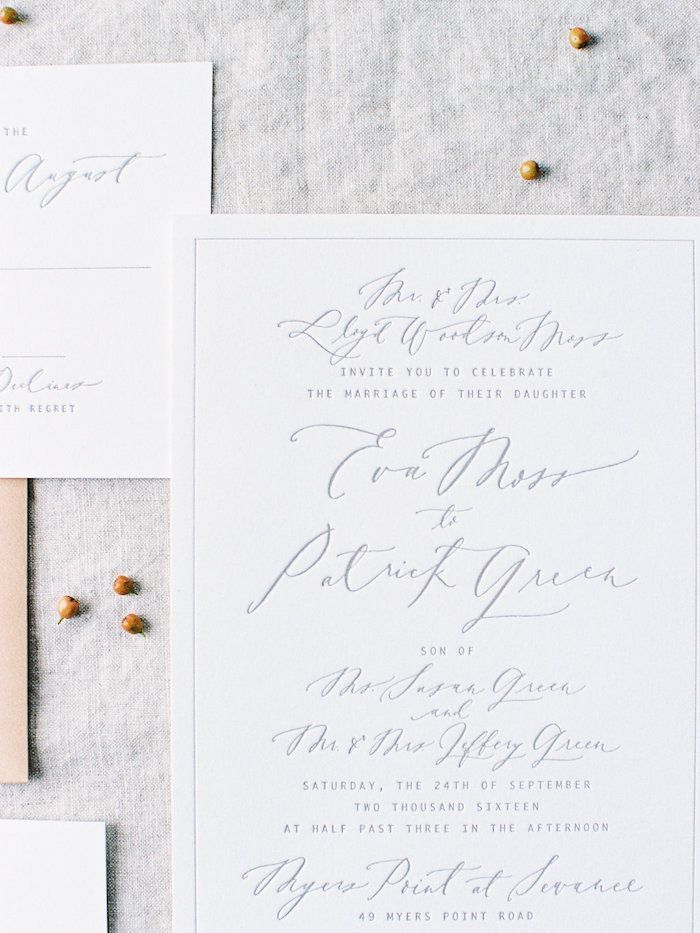 THE
August
Declines
WITH REGRET
Mr. & Mrs.
Lloyd Woodson Moss
INVITE YOU TO CELEBRATE
THE MARRIAGE OF THEIR DAUGHTER
Eva Moss
to
Patrick Green
SON OF
Ms. Susan Green
and
Mr. & Mrs. Jeffery Green
SATURDAY, THE 24TH OF SEPTEMBER
TWO THOUSAND SIXTEEN
AT HALF PAST THREE IN THE AFTERNOON
Myers Point at Sewanee
49 MYERS POINT ROAD